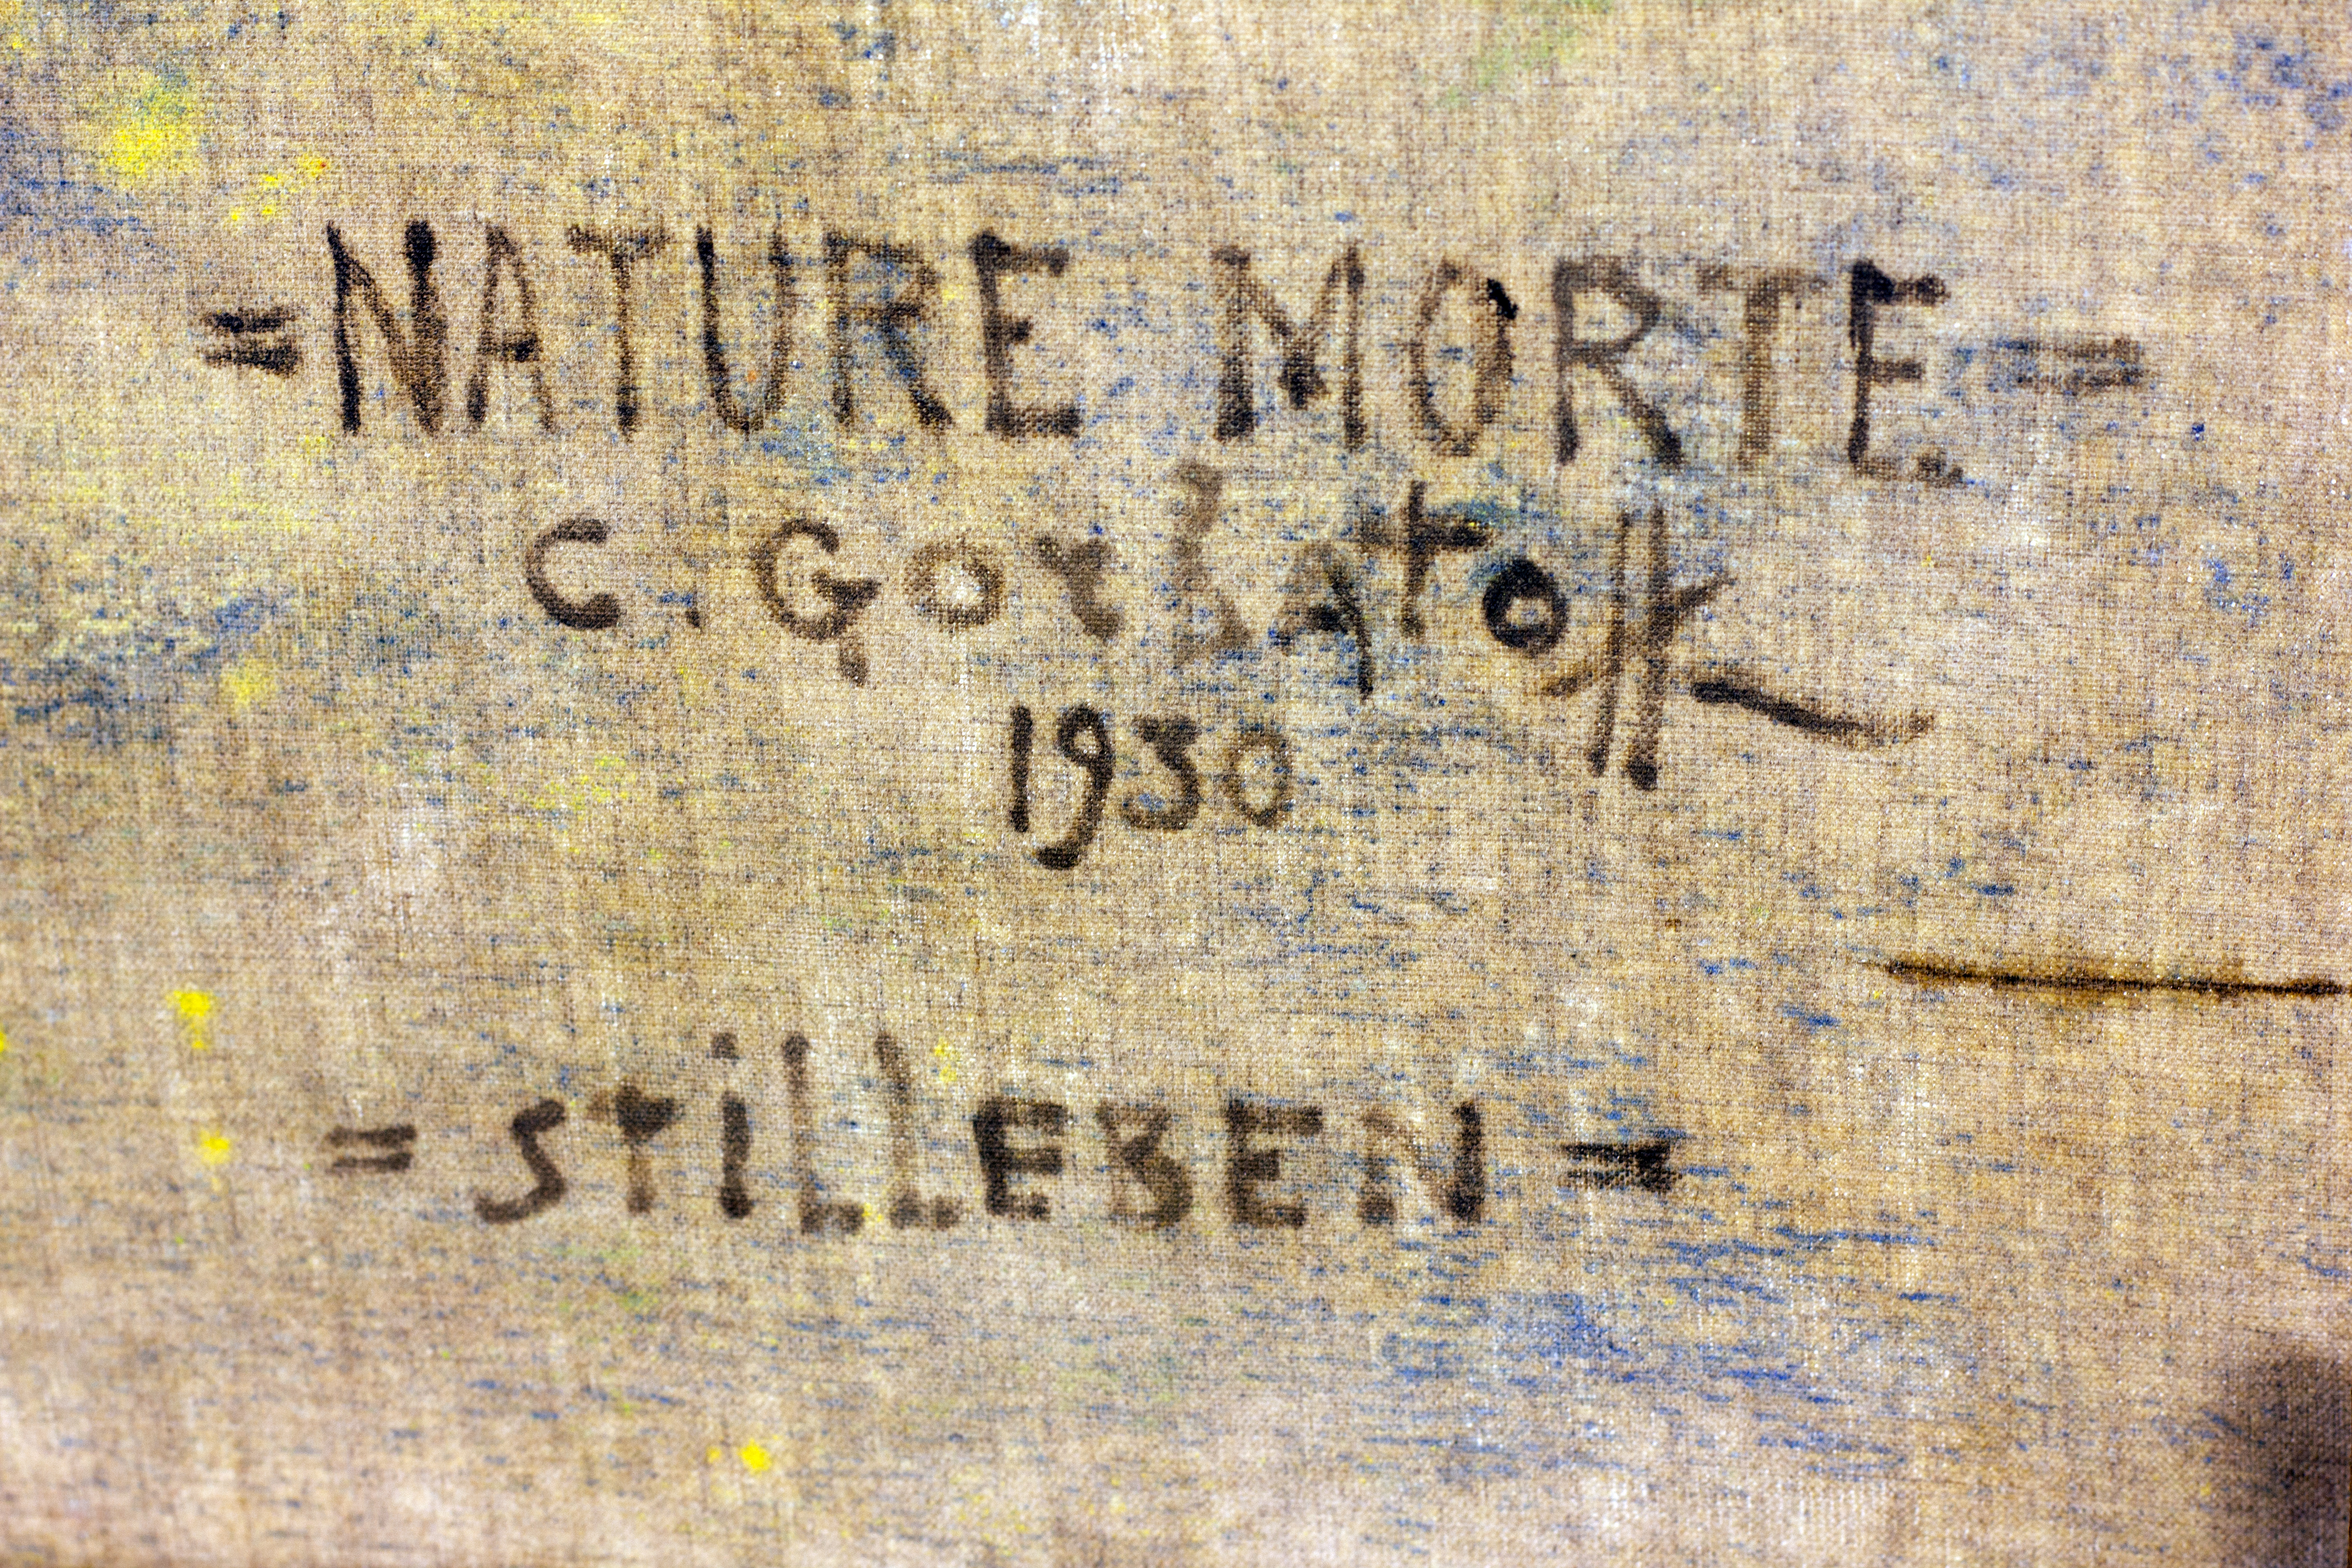 =NATURE MORTE=
C. Gorbatoff
1930
=STiLLEBEN=